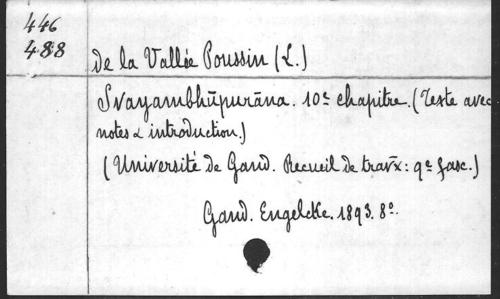 446
488
de la Vallée Poussin (L.)
Svayambhūpurāna. 10e chapitre. (Texte avec
notes & introduction.)
(Université de Gand. Recueil de travx: 9e fasc.)
Gand. Engelcke. 1893. 8°.